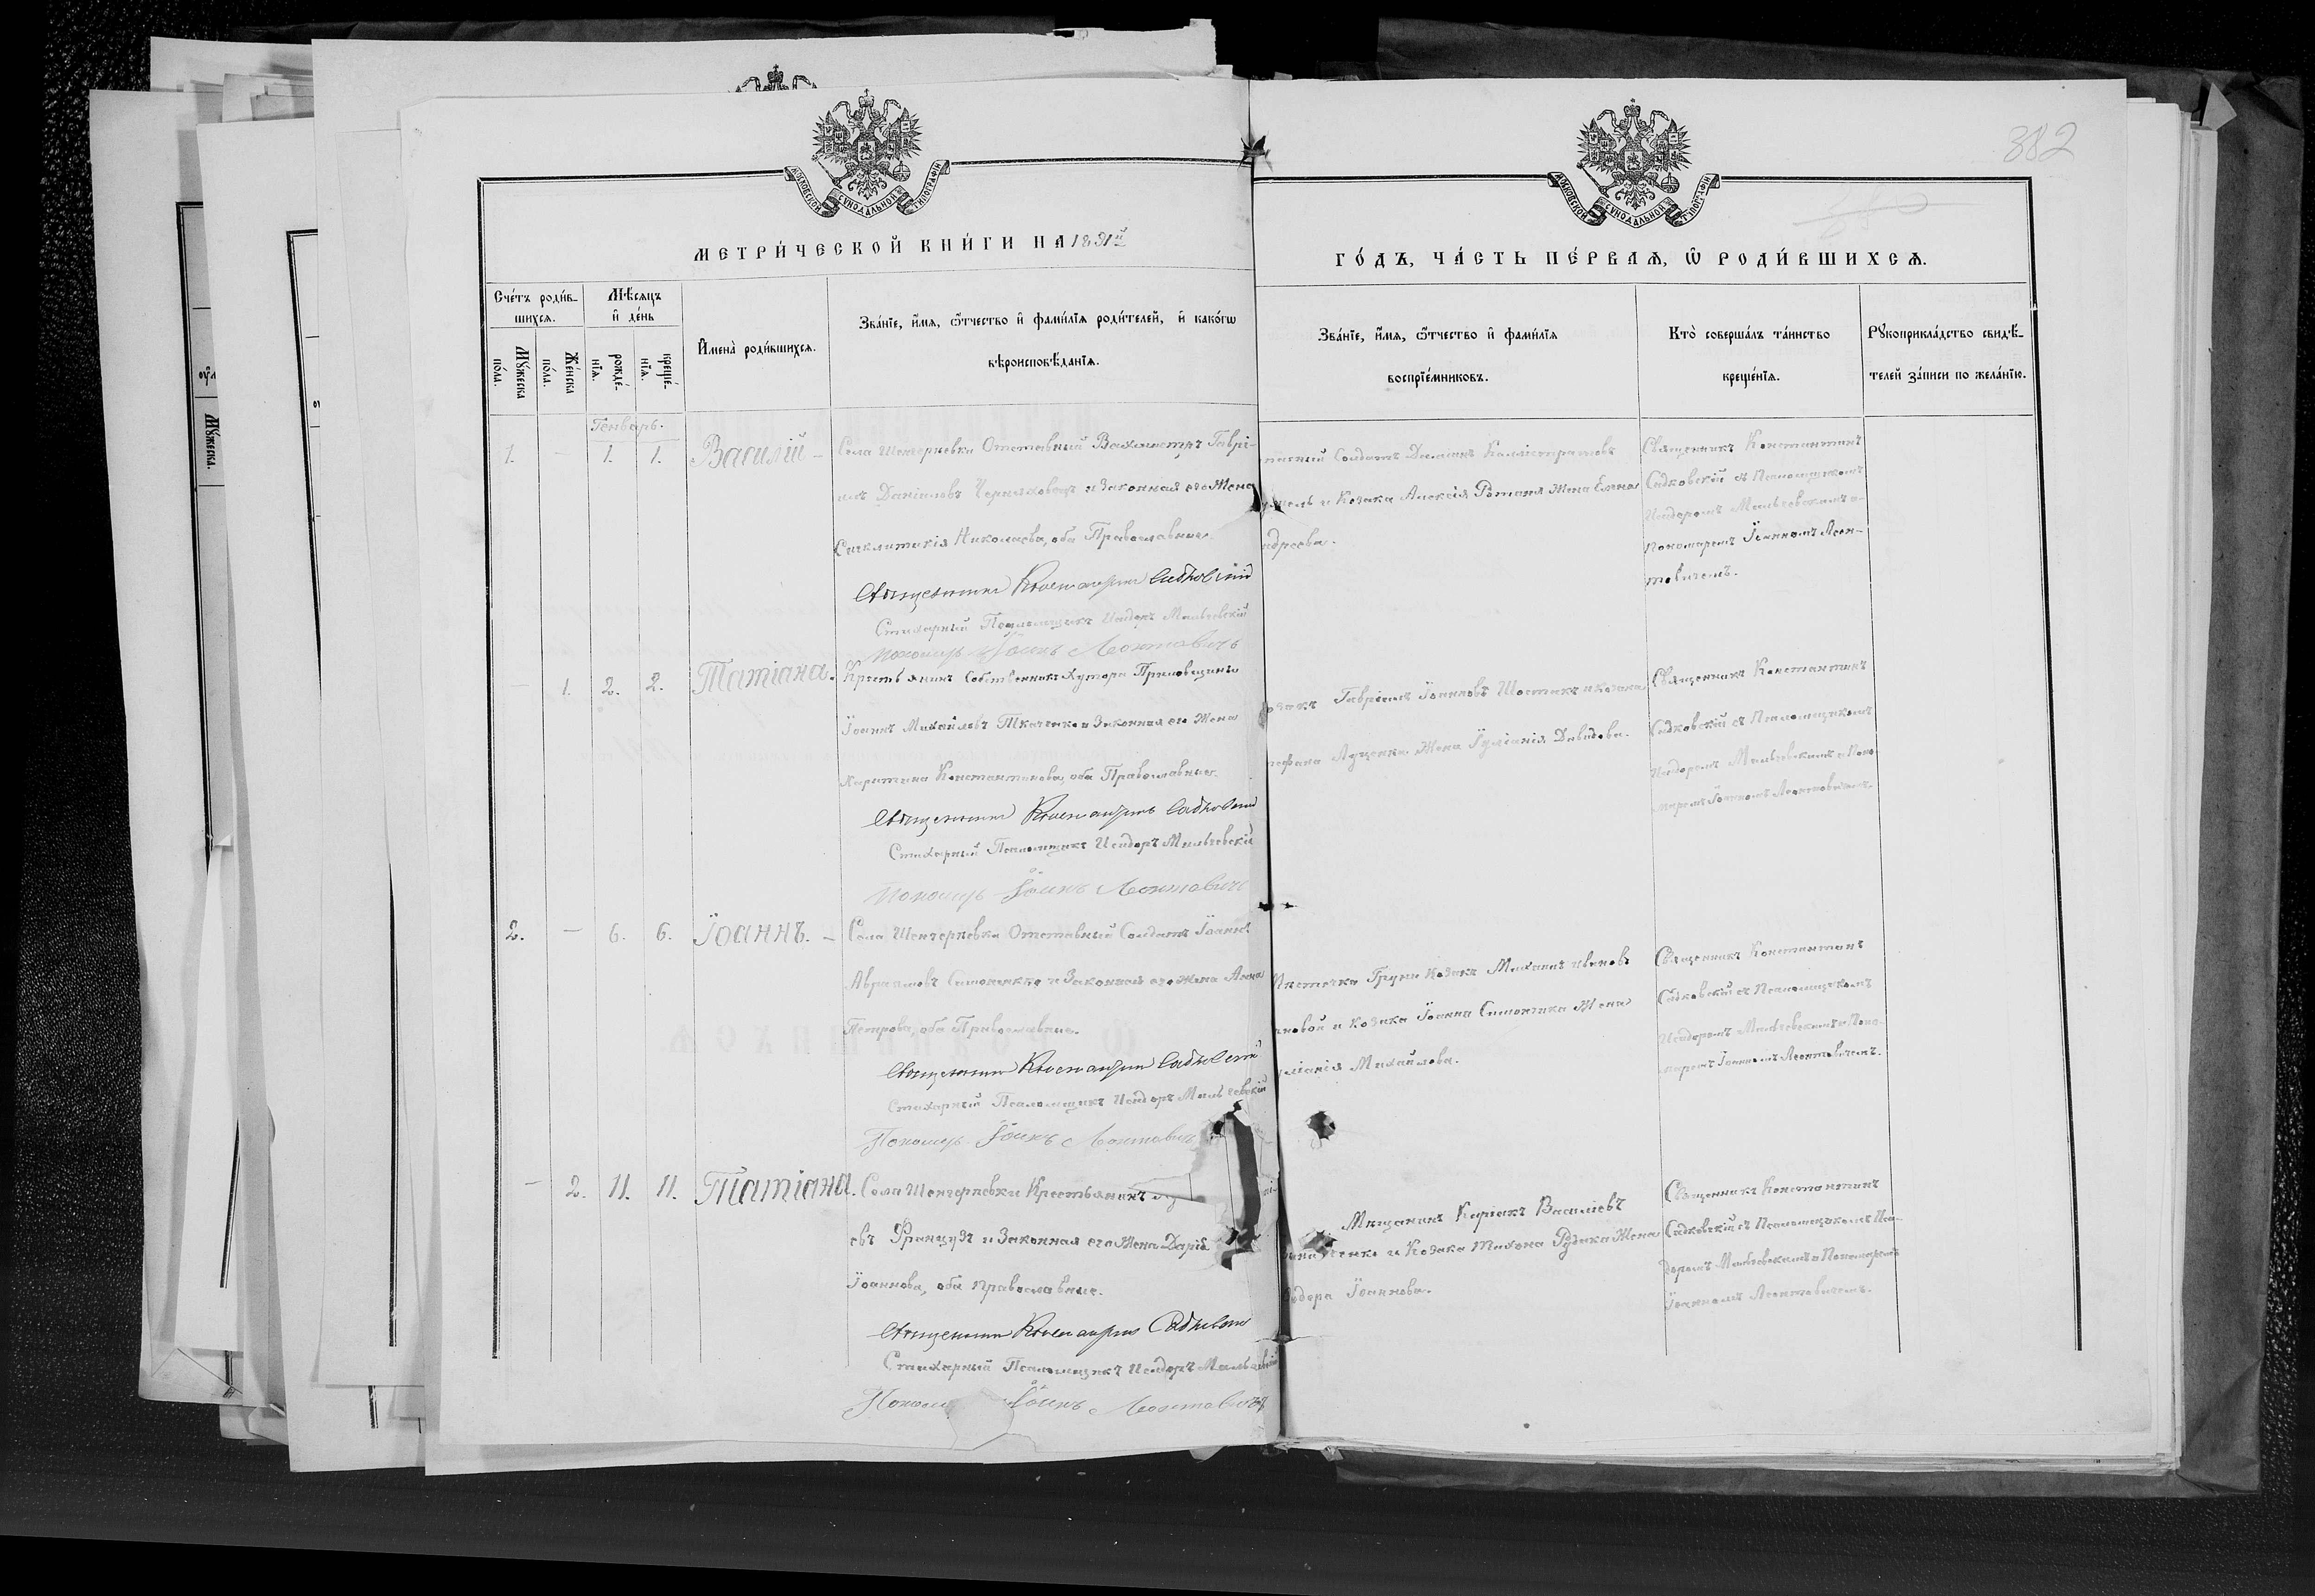 382
МОСКОВСКОЙ СѴНОДАЛЬНОЙ ТИПОГРАФІИ
МОСКОВСКОЙ СѴНОДАЛЬНОЙ ТИПОГРАФІИ
МЕТРИ́ЧЕСКОЙ КНИ́ГИ НА 1891й
ГО́ДЪ, ЧА́СТЬ ПЕ́РВАѦ, Ѡ҆ РОДИ́ВШИХСѦ.
Сче́тъ роди́в-
шихсѧ.
Мꙋ́жеска по́ла.
Же́нска по́ла.
Мѣ́сѧцъ
и҆ де́нь
рожде́-
нїѧ.
креще́-
нїѧ.
И҆мена̀ роди́вшихсѧ.
Зва́нїе, и҆́мѧ, ѻ҆́тчество и҆ фами́лїѧ роди́телей, и҆ како́гѡ
вѣроисповѣ́данїѧ.
Зва́нїе, и҆́мѧ, ѻ҆́тчество и҆ фами́лїѧ
воспрїе́мниковъ.
Кто̀ соверша́лъ та́инство
креще́нїѧ.
Рꙋкоприкла́дство свидѣ́-
телей за́писи по жела́нїю.
Генварь.
1. — 1. 1. Василій —
Села Шенгерievки Отставный Вахмистръ Гаврі-
илъ Даніиловъ Черняховецъ и Законная его Жена
Сигклитикія Николаева, оба Православные.
Священникъ Константинъ Садковскій
Стихарный Псаломщикъ Исидоръ Мальчевскій
Пономарь Іоаннъ Леонтовичъ
Солдатъ Даміанъ Каллистратовъ
и Козака Алексія Ротаня Жена Елена
Священникъ Константинъ
Садковскій съ Псаломщикомъ
Исидоромъ Мальчевскимъ и
Пономаремъ Іоанномъ Леон-
товичемъ.
— 1. 2. 2. Татіана.
Крестьянинъ Собственникъ Хутора
Іоаннъ Михайловъ Ткаченко и Законная его Жена
Харитина Константинова, оба Православные.
Священникъ Константинъ Садковскій
Стихарный Псаломщикъ Исидоръ Мальчевскій
Пономарь Іоаннъ Леонтовичъ
Гавріилъ Іоанновъ Шостакъ и козака
Луценка Жена Іуліанія Давидова.
Священникъ Константинъ
Садковскій съ Псаломщикомъ
Исидоромъ Мальчевскимъ и Поно-
маремъ Іоанномъ Леонтовичемъ.
2. — 6. 6. Іоаннъ. —
Села Шенгерievки Отставный Солдатъ Іоаннъ
Авраамовъ Симоненко и Законная его Жена Анна
Петрова, оба Православные.
Священникъ Константинъ Садковскій
Стихарный Псаломщикъ Исидоръ Мальчевскій
Пономарь Іоаннъ Леонтовичъ
Местечка Груни Козакъ Михаилъ Ивановъ
и Козака Іоанна Симоненка Жена
Михайлова.
Священникъ Константинъ
Садковскій съ Псаломщикомъ
Исидоромъ Мальчевскимъ и Поно-
маремъ Іоанномъ Леонтовичемъ.
— 2. 11. 11. Татіана.
Села Шенгерievки Крестьянинъ
евъ Французъ и Законная его Жена Дарія
Іоаннова, оба православные.
Священникъ Константинъ Садковскій
Стихарный Псаломщикъ Исидоръ Мальчевскій
Іоаннъ Леонтовичъ
Мещанинъ Киріакъ Василіевъ
и Козака Тихона Рудька Жена
Іоаннова.
Священникъ Константинъ
Садковскій съ Псаломщикомъ Иси-
доромъ Мальчевскимъ и Пономаремъ
Іоанномъ Леонтовичемъ.